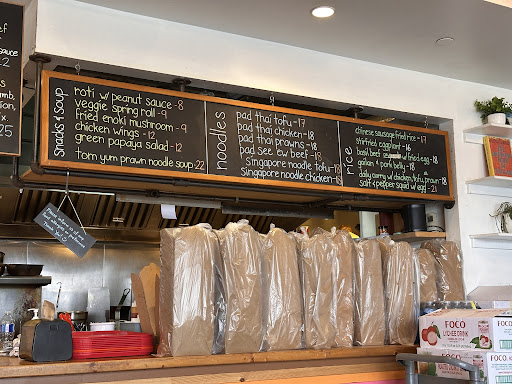 sauce
22
lamb,
25
snacks & soup
roti w/ peanut sauce - 8
veggie spring roll - 9
fried enoki mushroom - 9
chicken wings - 12
green papaya salad - 12
tom yum prawn noodle soup 22
noodles
pad thai tofu - 17
pad thai chicken - 18
pad thai prawns - 18
pad see ew beef - 18
Singapore noodle tofu - 18
Singapore noodle chicken - 18
rice
chinese sausage fried rice - 17
stirfried eggplant
basil beef w/ fried egg - 18
& pork belly - 18
daily curry w/ chicken, tofu, prawn - 18
salt & pepper squid w/ egg - 21
FOCO
LYCHEE DRINK
FOCO